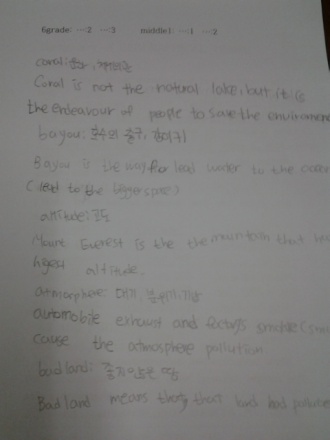 6grade: -:2 -:3 middle1: -:1 -:2
Coral is not the natural lake, but it is
the endeavour of people to save the enviroment
bayou: 호수의
Bayou is the way for lead water to the ocean
( lead to the bigger
altitude: 고도
Mount Everest is the the mountain that
higest altitude.
atmosphere: 대기,
automobile exhaust and factory's smoke
cause the atmosphere pollution
badland: 좋지않은 땅
Badland means that land had